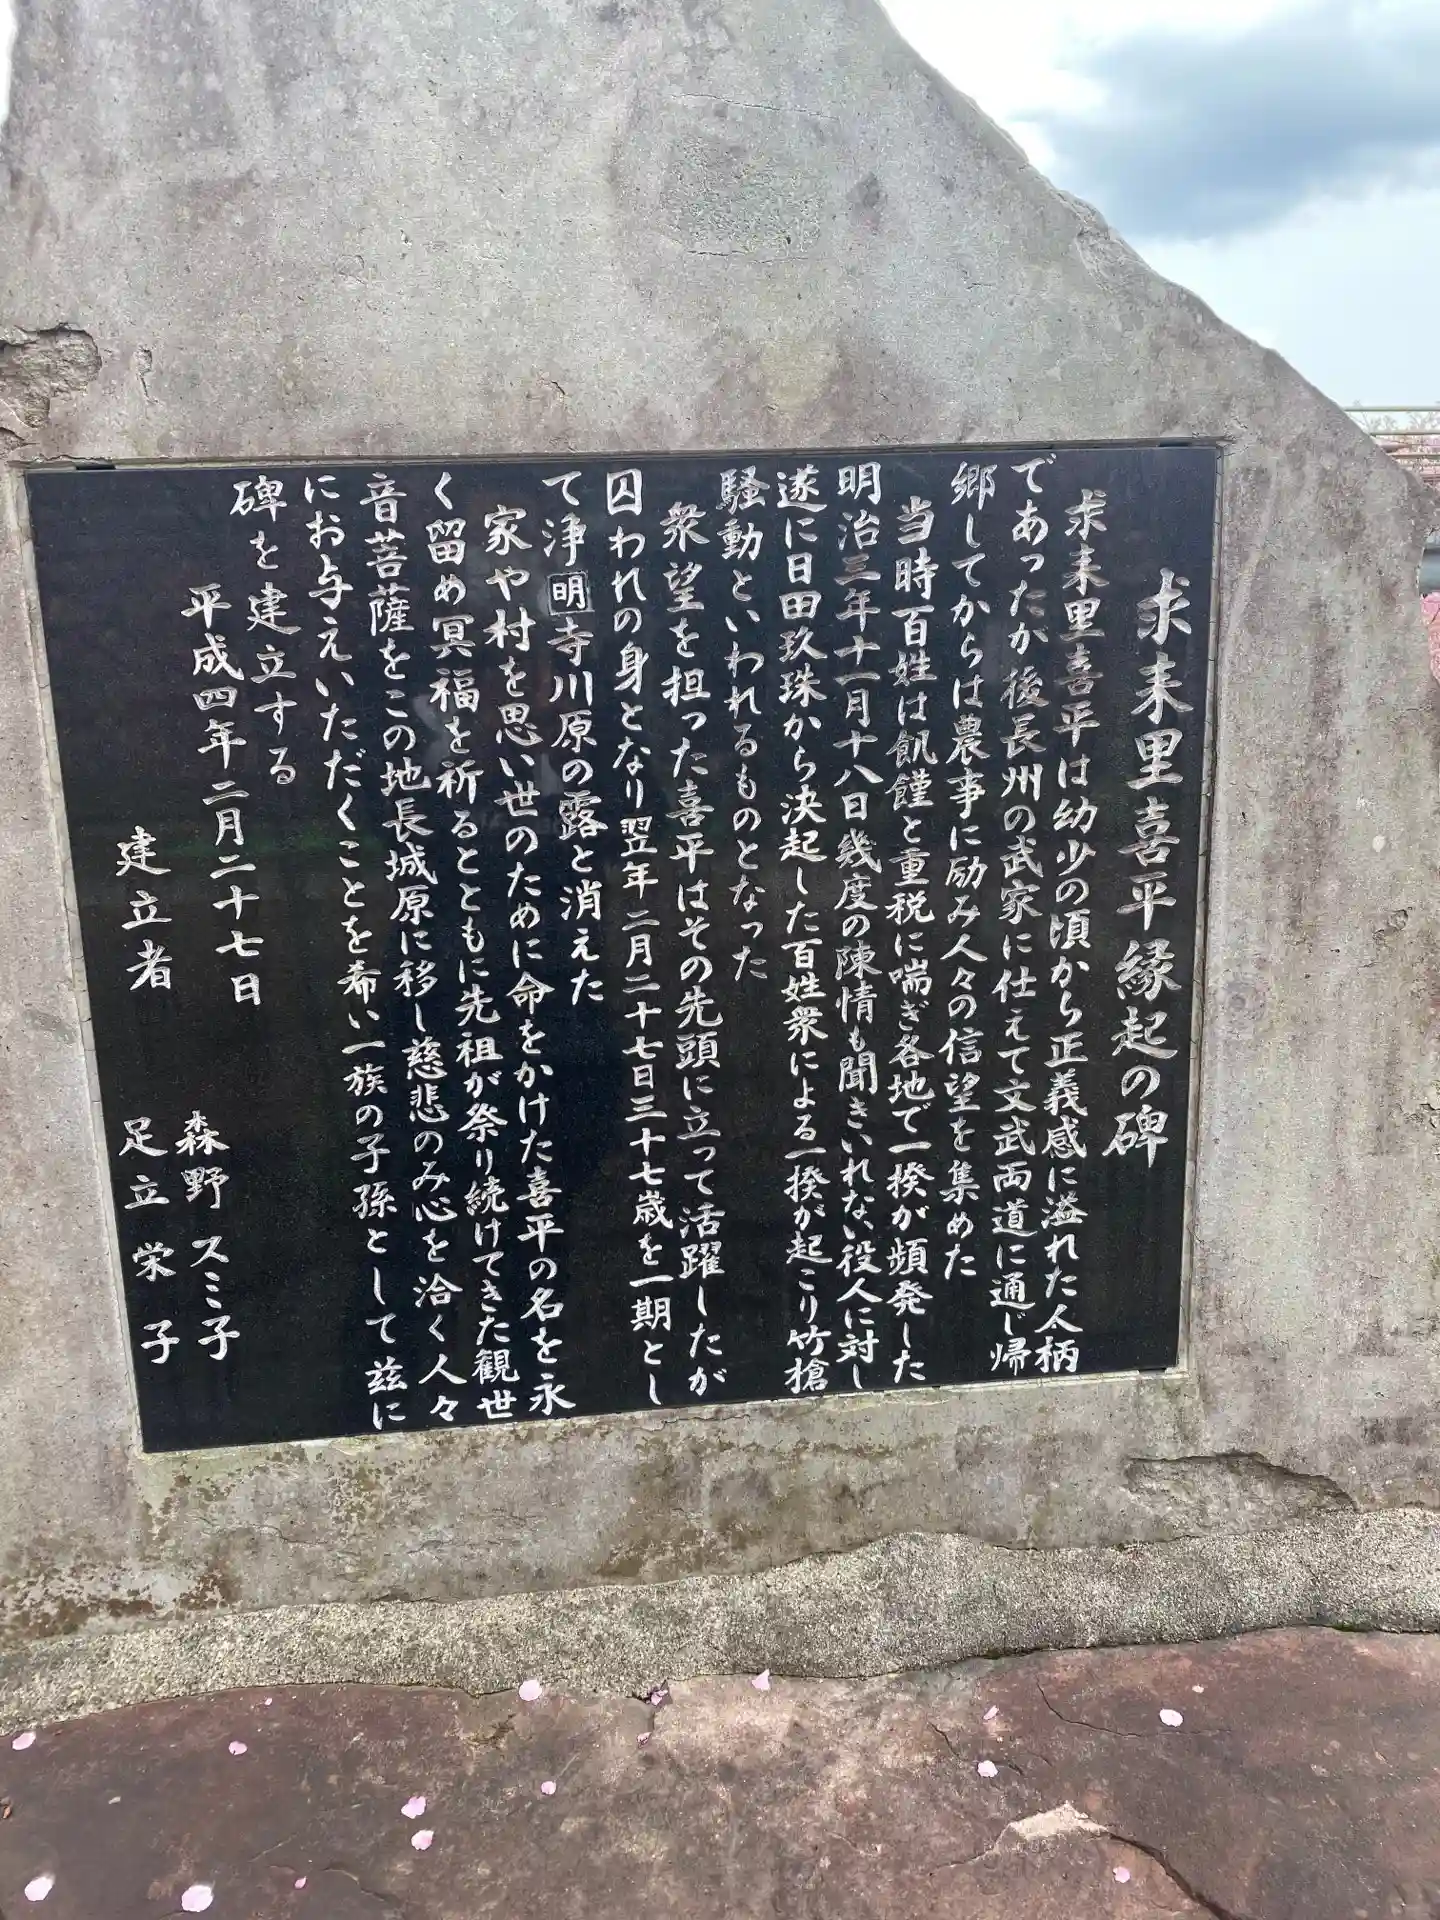 求来里喜平縁起の碑
求来里喜平は幼少の頃から正義感に溢れた人柄
であったが後長州の武家に仕えて文武両道に通じ帰
郷してからは農事に励み人々の信望を集めた
当時百姓は飢饉と重税に喘ぎ各地で一揆が頻発した
明治三年十一月十八日幾度の陳情も聞きいれない役人に対し
遂に日田玖珠から決起した百姓衆による一揆が起こり竹槍
騒動といわれるものとなった
衆望を担った喜平はその先頭に立って活躍したが
囚われの身となり翌年二月二十七日三十七歳を一期とし
て浄明寺川原の露と消えた
家や村を思い世のために命をかけた喜平の名を永
く留め冥福を祈るとともに先祖が祭り続けてきた観世
音菩薩をこの地長城原に移し慈悲のみ心を洽く人々
にお与えいただくことを希い一族の子孫として茲に
碑を建立する
平成四年二月二十七日
建立者 森野スミ子
足立栄子